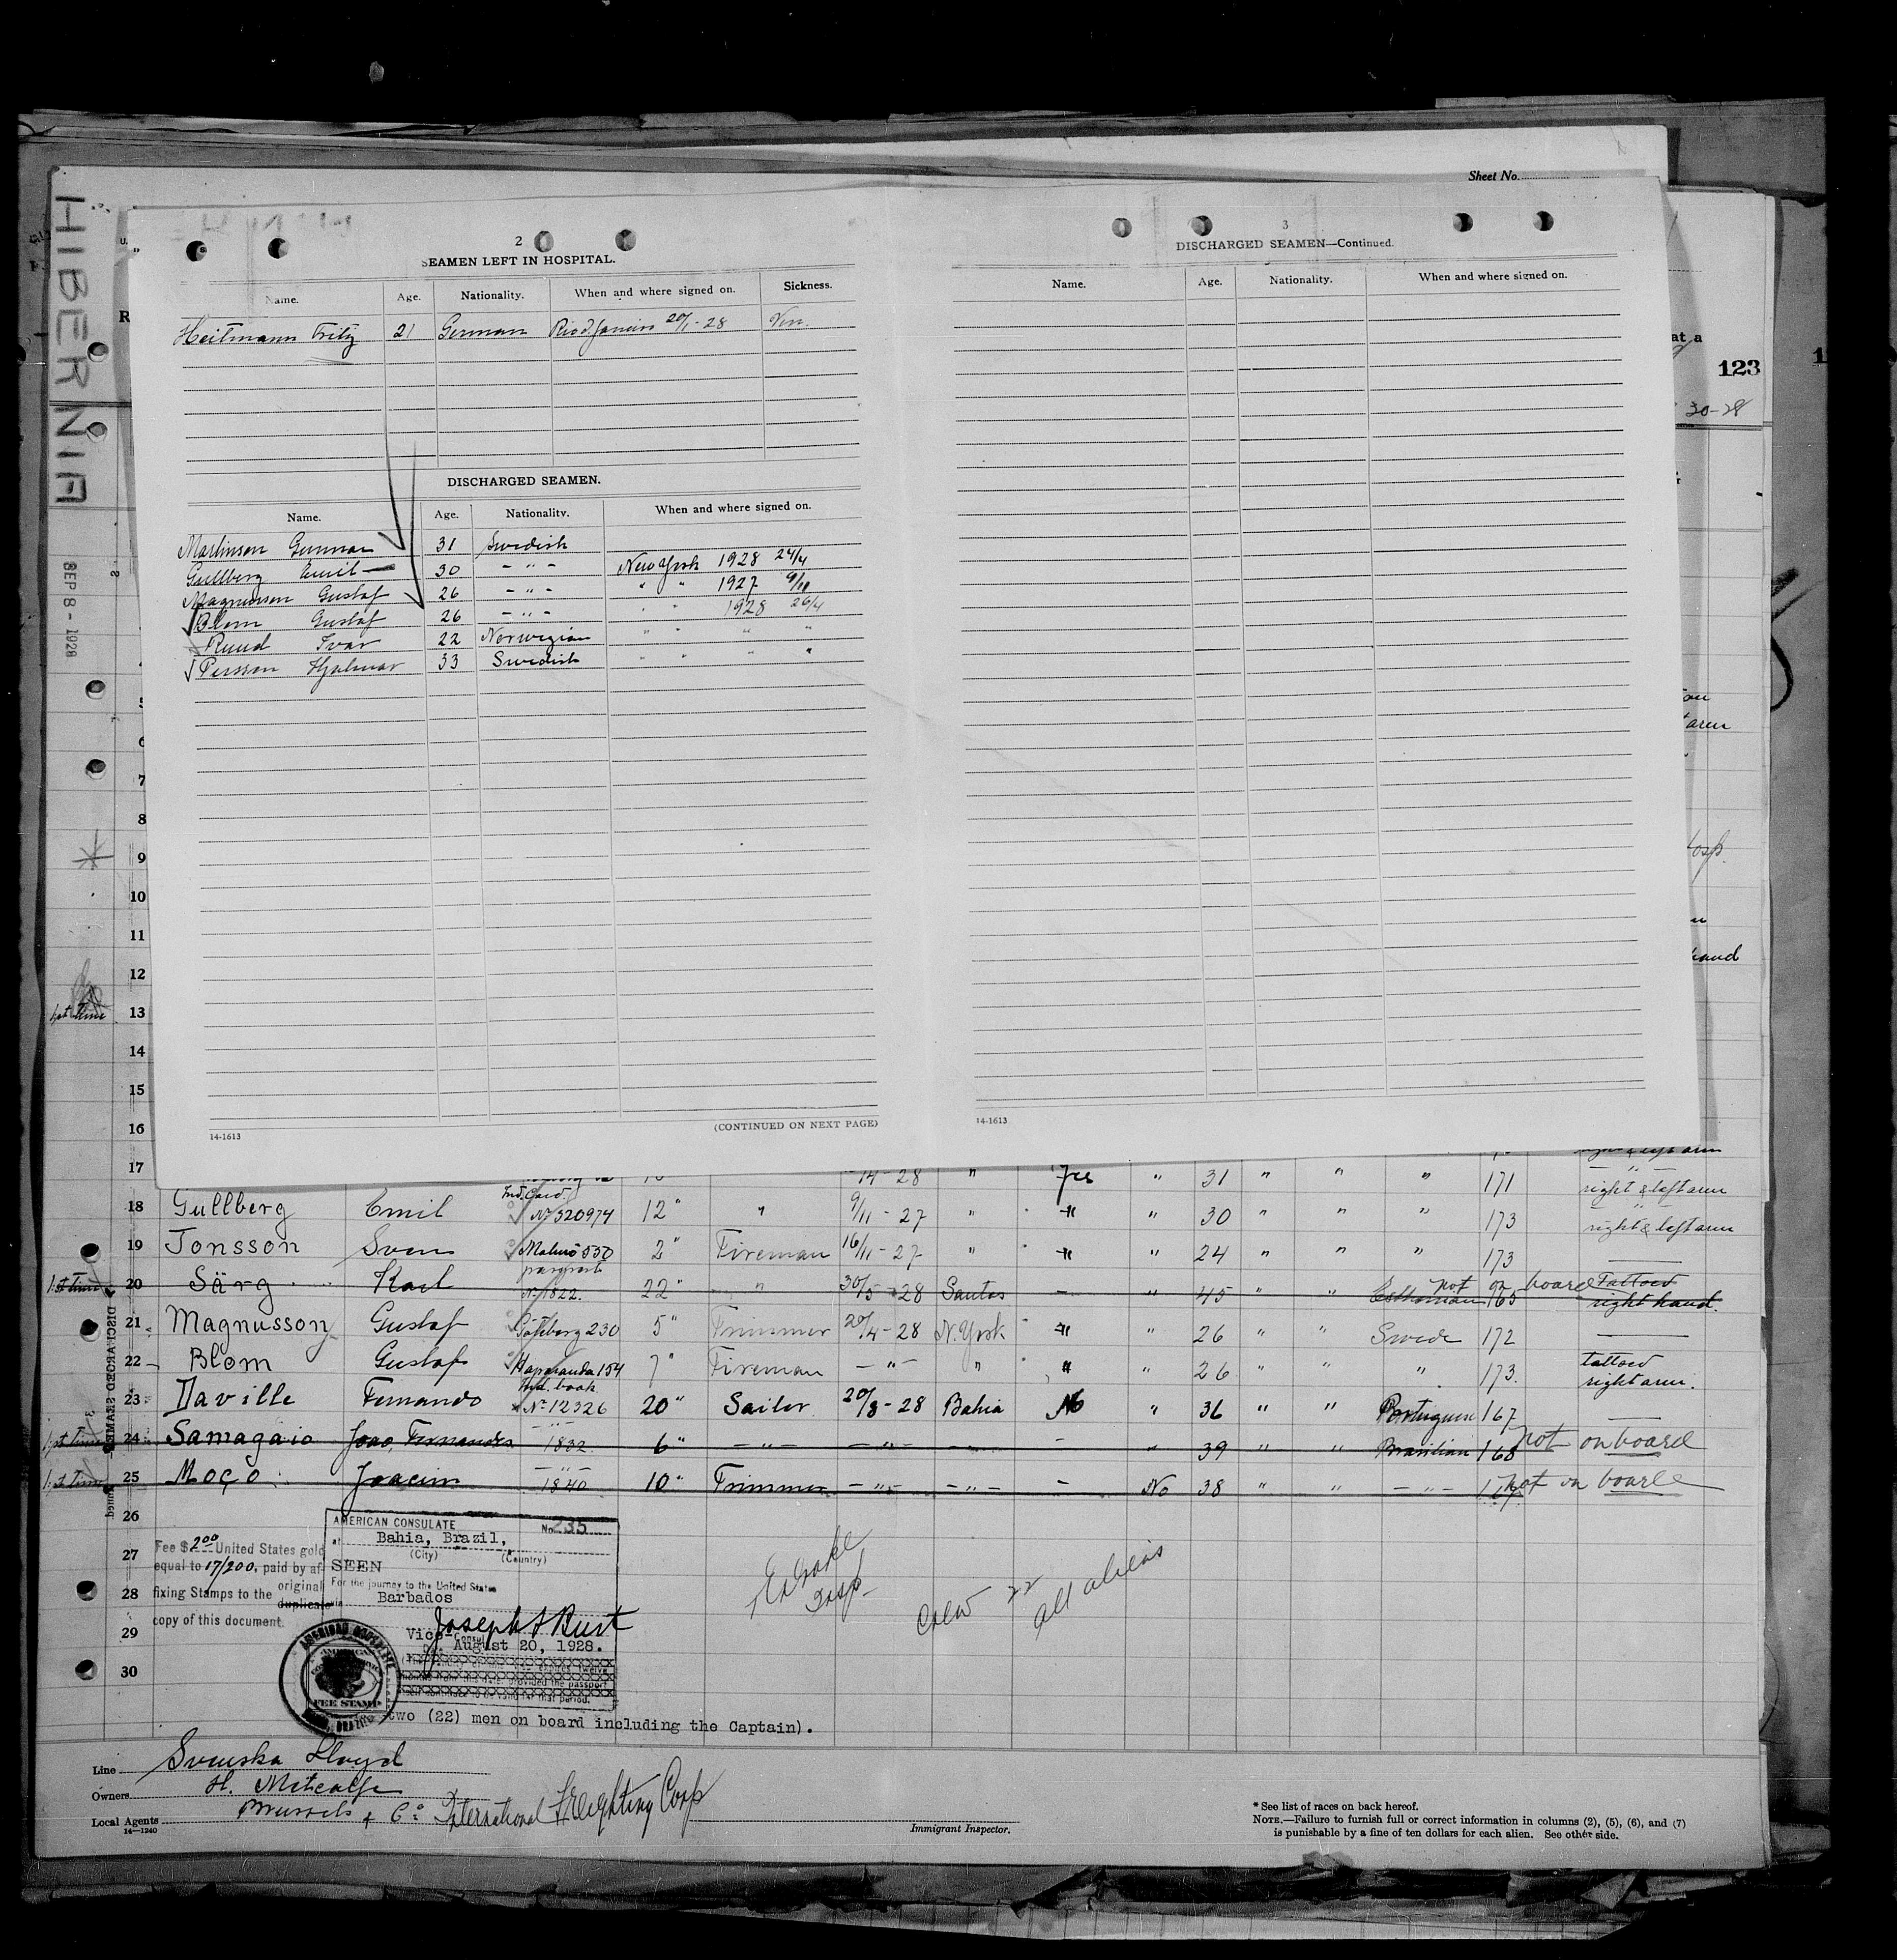 Sheet No.
HIBERNIA
SEP 8 - 1928
2
SEAMEN LEFT IN HOSPITAL.
Name. Age. Nationality. When and where signed on. Sickness.
Heitmann Fritz 21 German Rio d. Janeiro 20/1-28 Ven.
DISCHARGED SEAMEN.
Name. Age. Nationality. When and where signed on.
Martinson Gunnar 31 Swedish
Gullberg Emil 30 - " - New York 1928 24/4
Magnusson Gustaf 26 - " - " " 1927 9/11
Blom Gustaf 26 - " - " 1928 26/4
Ruud Ivar 22 Norwegian " " " "
Persson Hjalmar 33 Swedish " " " "
(CONTINUED ON NEXT PAGE)
14-1613
3
DISCHARGED SEAMEN—Continued.
Name. Age. Nationality. When and where signed on.
14-1613
at a
123
30-28
arm
hand
6
7
8
9
10
11
12
1st time 13
14
15
16
17 14-28 " Yes " 31 " " " 171 right & left arm
18 Gullberg Emil Ind. Card. No 320974 12 " " 9/11-27 " " " 30 " " " 173 right & left arm
19 Jonsson Sven Malmö 550 2 " Fireman 16/11-27 " " " 24 " " " 173
1st time 20 Särg Karl No 1822. 22 " " 30/5-28 Santos - " 45 " " Esthonian 165 not on board Tattoed right hand.
21 Magnusson Gustaf Göteborg 230 5 " Trimmer 20/4-28 N. York " " 26 " " Swede 172
22 Blom Gustaf Haparanda 154 7 " Fireman - " - " " " 26 " " " 173. tattoed right arm.
23 Daville Fernando Ind. book No 12326 20 " Sailor 20/8-28 Bahia No " 36 " " Portuguese 167
1st time 24 Samagaio Joao Fernandes 1832 6 " - " - - " - - " 39 " " Brasilian 168 not on board
1st time 25 Moço Joacim 1840 10 " Trimmer - " - - " - - No 38 " " - " - not on board
26
27
28
29
30
DISCHARGED SEAMEN
Fee $ 2.00 United States gold
equal to 17/200, paid by af-
fixing Stamps to the original
duplicate
copy of this document.
AMERICAN CONSULATE No 235
at Bahia, Brazil,
(City) (Country)
SEEN
For the journey to the United States
via Barbados
Joseph Burt
Vice Consul
August 20, 1928.
FEE STAMP
two (22) men on board including the Captain).
Crew 22
all aliens
Line Svenska Lloyd
Owners H. Metcalfe
Local Agents Brussels & Co International Freighting Corp
14—1240
Immigrant Inspector.
* See list of races on back hereof.
NOTE.—Failure to furnish full or correct information in columns (2), (5), (6), and (7)
is punishable by a fine of ten dollars for each alien. See other side.